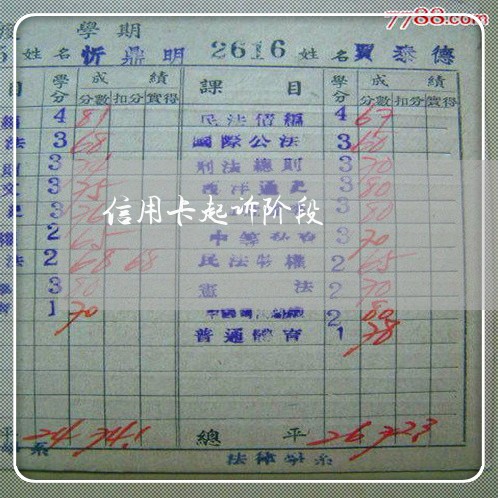 7788.com
學期
姓名 忻鼎明 2616 姓名 賈泰德
目 學分 成績 課目 學分 成績
分數 扣分 實得 分數 扣分 實得
4 81 民法債編 4 67
法 3 68 國際公法 3 60
3 刑法總則 3 70
3 75 西洋通史 3 80
信用卡起诉阶段
3 3 80
權 2 65 3 70
法 2 68 68 民法物權 2 65
3 80 憲法 2 70
1 70 2 80
普通體育 1 78
平 24 74.1 總平 26 72.3
系 法律學系